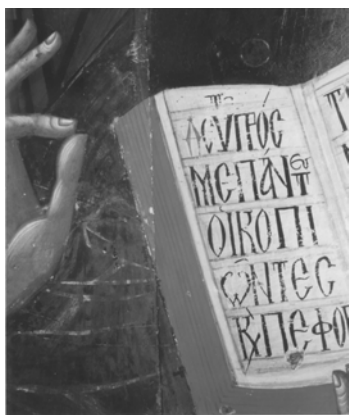 ΔΕΥΤΕ ΠΡΌC
ΜΕ ΠΆΝΤ
ΟΙΚΟΠΙ
ῶΝΤΕC
Ϗ ΠΕΦΟ
Τ